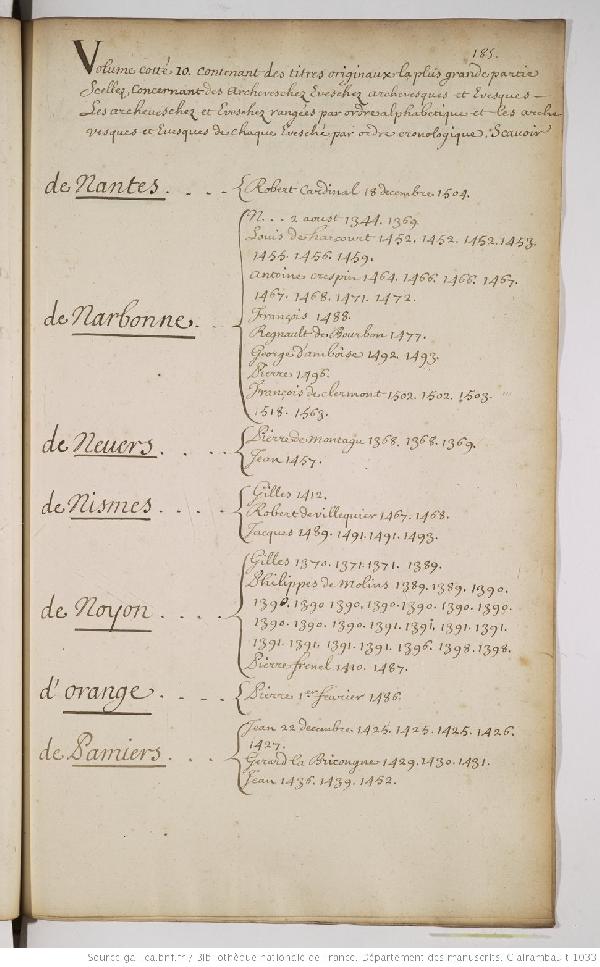 185.
Volume cotté 10. contenant des titres originaux la plus grande partie
Scellez, Concernant des Archeveschez Eveschez archevesques et Evesques -
Les archeveschez et Eveschez rangées par ordre alphabetique et les arche
vesques et Evesques de chaque Evesché par ordre cronologique, Scavoir
de Nantes. . . . Robert Cardinal 18 decembre 1504.
N... 2 aoust 1344. 1369.
Louis de harcourt 1452. 1452. 1452. 1453.
1455. 1456. 1459.
Antoine crespin 1464. 1466. 1466. 1467.
1467. 1468. 1471. 1472.
de Narbonne. . François 1488.
Regnault de Bourbon 1477.
George d'amboise 1492. 1493.
Pierre 1496.
François de clermont 1502. 1502. 1503.
1518. 1563.
de Nevers. . . . Pierre de Montagu 1368. 1368. 1369.
Jean 1457.
Gilles 1412.
de Nismes. . . . Robert de villequier 1467. 1468.
Jacques 1489. 1491. 1491. 1493.
Gilles 1370. 1371. 1371. 1389.
Philippes de Molins 1389. 1389. 1390.
1390. 1390 1390. 1390. 1390. 1390. 1390.
de Noyon. . . . 1390. 1390. 1390. 1391. 1391. 1391. 1391.
1391. 1391. 1391. 1391. 1396. 1398. 1398.
Pierre frenel 1410. 1487.
d'orange. . . . Pierre 1er fevrier 1486.
Jean 22 decembre 1425. 1425. 1425. 1426.
1427.
de Pamiers. . . . Gerard la Bricongne 1429. 1430. 1431.
Jean 1436. 1439. 1452.
Source gallica.bnf.fr / Bibliothèque nationale de France. Département des manuscrits. Clairambault 1033